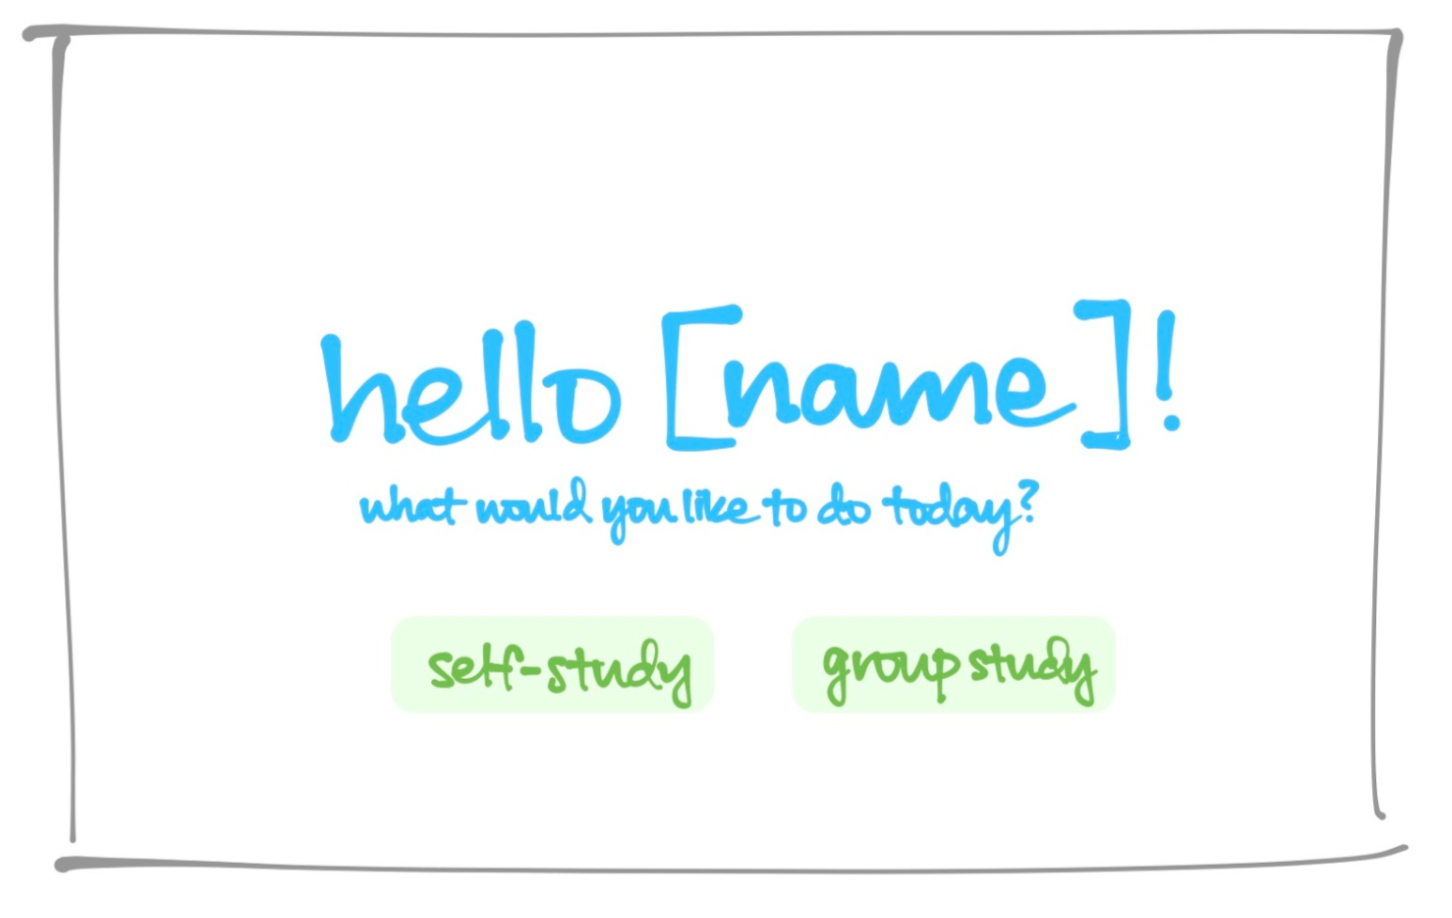 hello [name]!
what would you like to do today?
self-study
group study